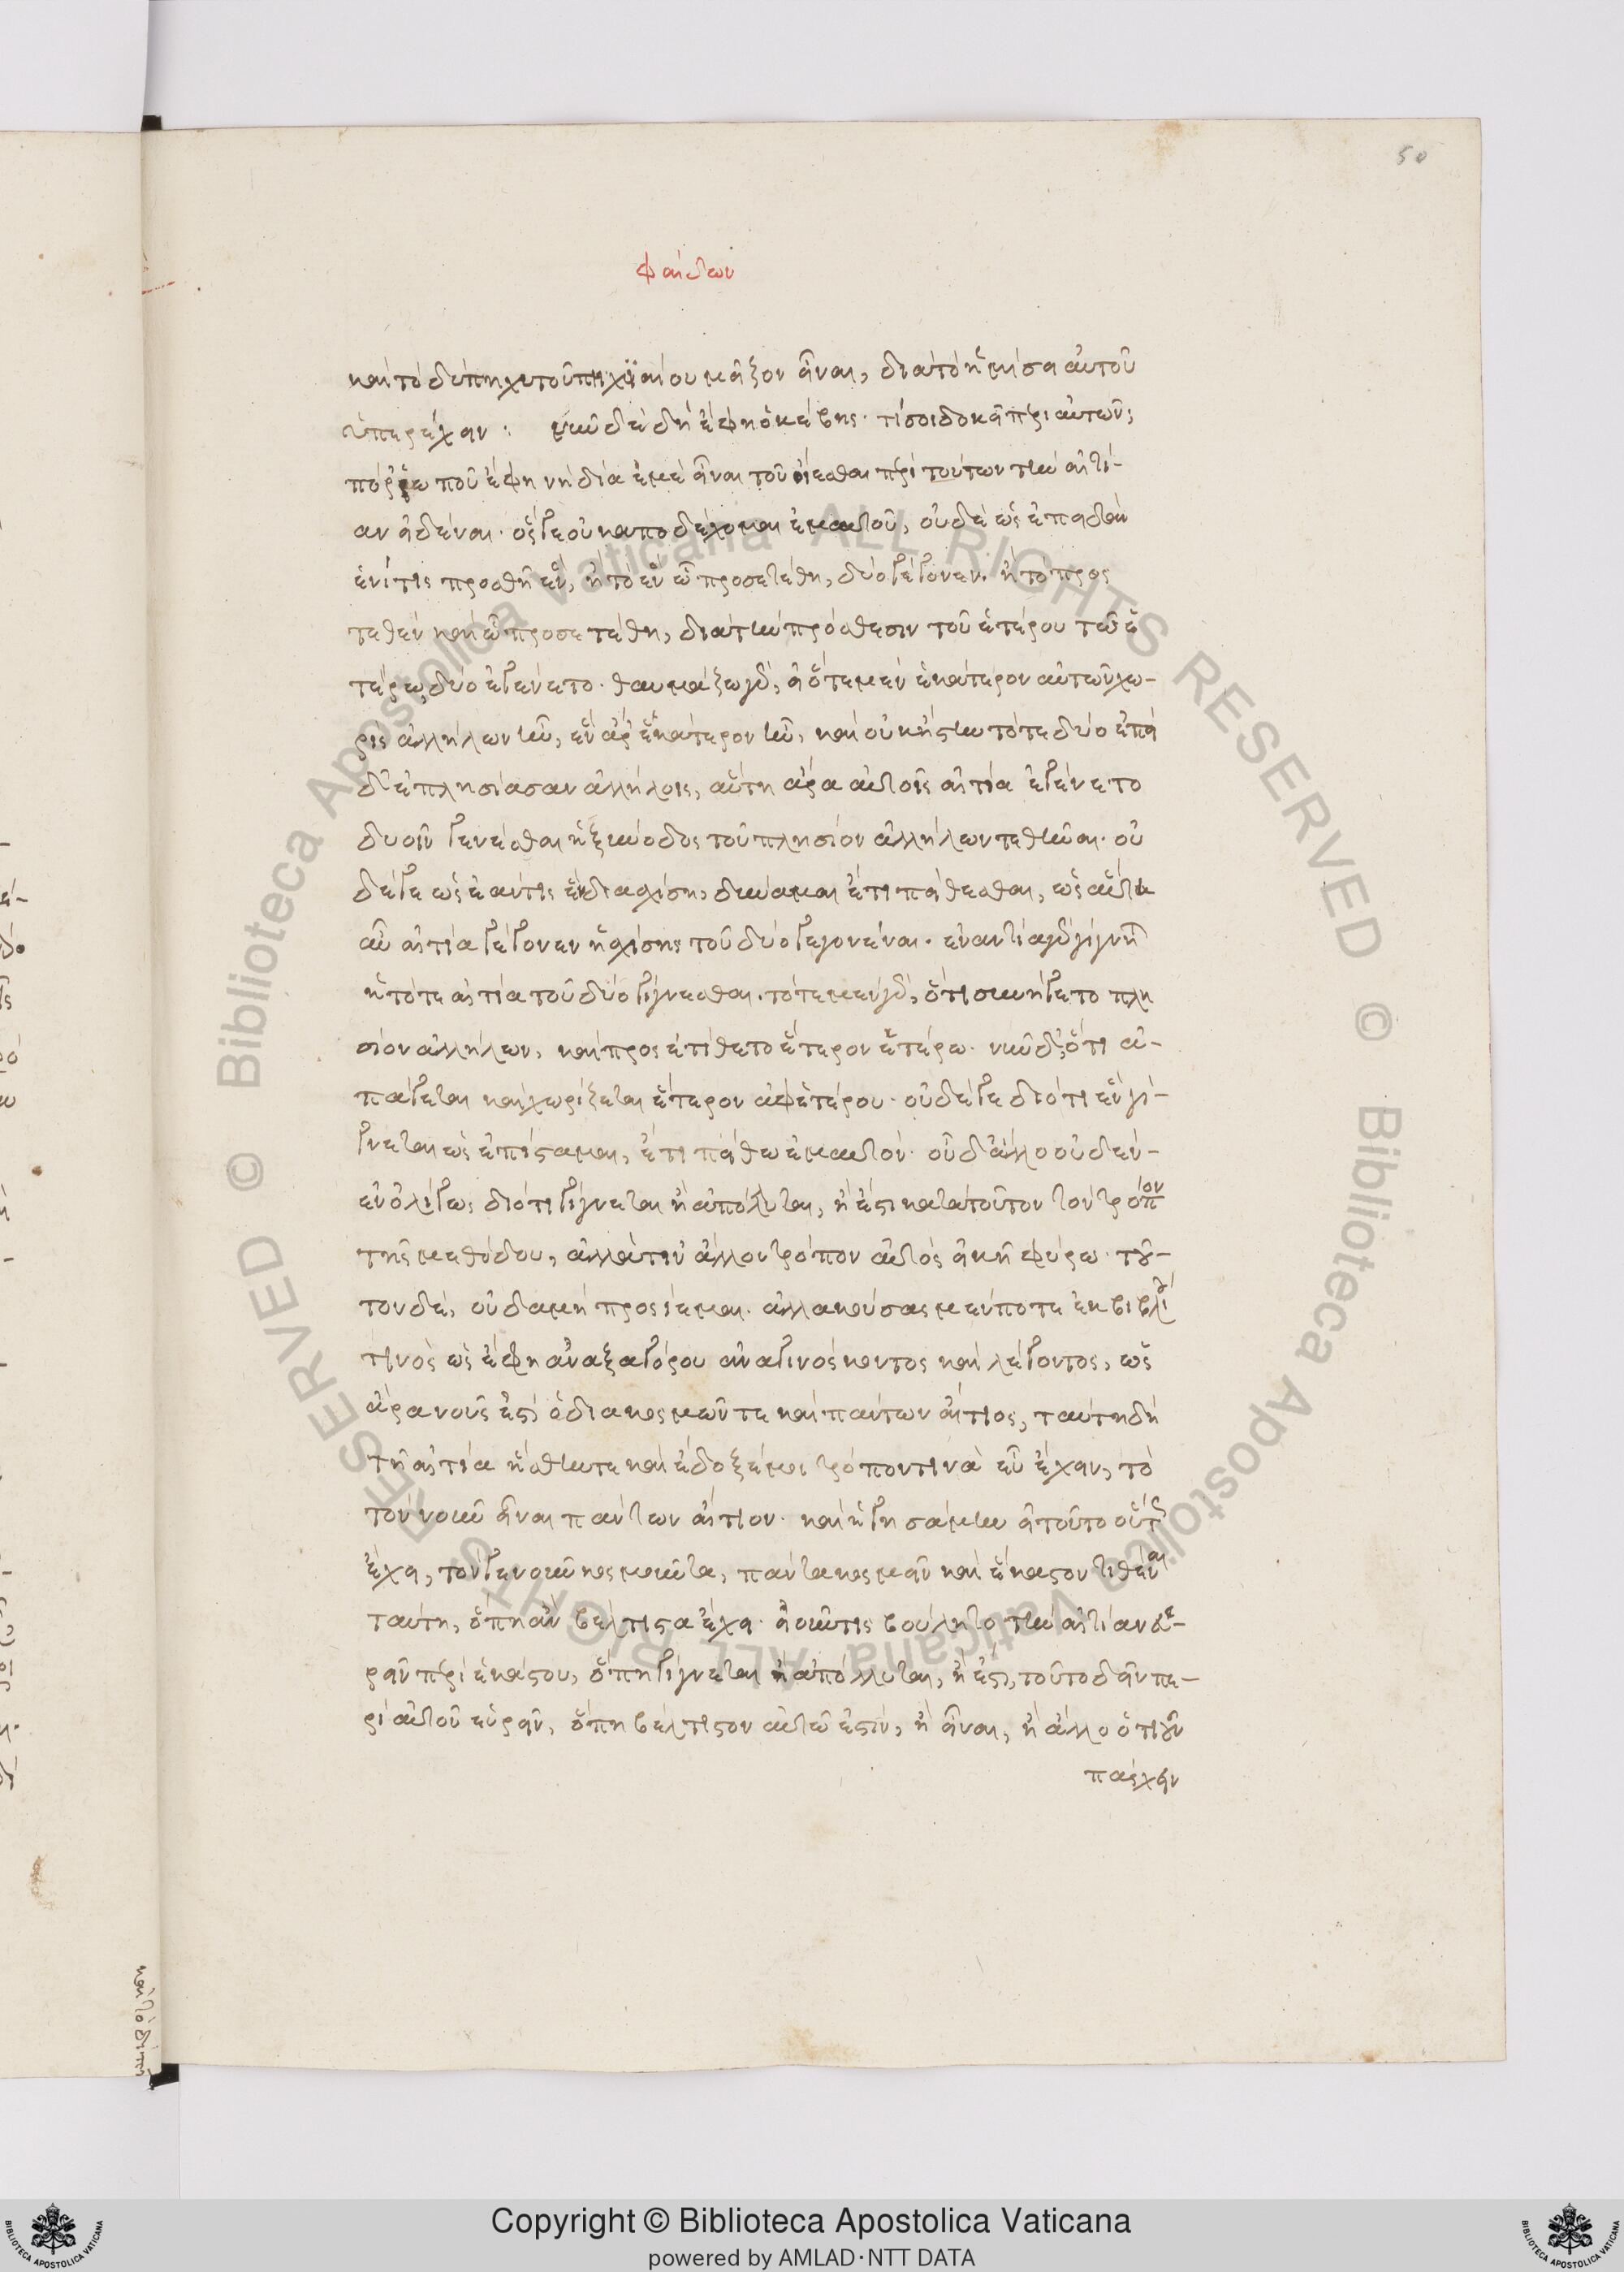 50
φαίδων
καὶ τὸ δίπηχυ τοῦ πηχϋαίου μεῖζον εἶναι, διὰ τὸ ἡμίσει αὐτοῦ
ὑπερέχειν: νῦν δὲ δὴ ἔφη ὁ κέβης· τί σοι δοκεῖ περὶ αὐτῶν;
πόρρω που ἔφη νὴ δία ἐμὲ εἶναι τοῦ οἴεσθαι περὶ τούτων τὴν αἰτί-
αν εἰδέναι· ὅς γε οὐκ ἀποδέχομαι ἐμαυτοῦ, οὐδὲ ὡς ἐπειδὰν
ἑνί τις προσθῇ ἓν, ἢ τὸ ἓν ᾧ προσετέθη, δύο γέγονεν· ἢ τὸ προς
τεθὲν καὶ ᾧ προσετέθη, διὰ τὴν πρόσθεσιν τοῦ ἑτέρου τῷ ἑ
τέρῳ δύο ἐγένετο· θαυμάζω γὰρ, εἰ ὅτε μὲν ἑκάτερον αὐτῶν χω-
ρὶς ἀλλήλων ἦν, ἓν ἄρ' ἑκάτερον ἦν, καὶ οὐκ ἤστην τότε δύο ἐπεὶ
δ' ἐπλησίασαν ἀλλήλοις, αὕτη ἄρα αὐτοῖς αἰτία ἐγένετο
δυοῖν γενέσθαι ἡ ξύνοδος τοῦ πλησίον ἀλλήλων τεθῆναι· οὐ
δέ γε ὡς ἐάν τις ἓν διασχίσῃ, δύναμαι ἔτι πείθεσθαι, ὡς αὕτη
αὖ αἰτία γέγονεν ἡ σχίσις τοῦ δύο γεγονέναι· ἐναντία γὰρ γίγνεται
ἢ τότε αἰτία τοῦ δύο γίγνεσθαι· τότε μὲν γὰρ, ὅτι συνήγετο πλη
σίον ἀλλήλων, καὶ προς ἐτίθετο ἕτερον ἑτέρω· νῦν δ' ὅτι ἀ-
πάγεται καὶ χωρίζεται ἕτερον ἀφ' ἑτέρου· οὐδέ γε διότι ἓν γί-
γνεται ὡς ἐπίσταμαι, ἔτι πείθω ἐμαυτόν· οὐδ' ἄλλο οὐδὲν-
ἑνὶ λόγω, διότι γίγνεται ἢ ἀπόλλυται, ἢ ἔστι κατὰ τοῦτον τὸν τρόπον
τῆς μεθόδου, ἀλλά τιν' ἄλλον τρόπον αὐτὸς εἰκῆ φύρω· τοῦ-
τον δὲ, οὐδαμῆ προσίεμαι· ἀλλ' ἀκούσας μέν ποτε ἐκ βιβλί
τινὸς ὡς ἔφη ἀναξαγόρου ἀναγινώσκοντος καὶ λέγοντος, ὡς
ἄρα νοῦς ἐστὶ ὁ διακοσμῶν τε καὶ πάντων αἴτιος, ταύτη δὴ
τῇ αἰτία ἥσθην τε καὶ ἔδοξέ μοι τρόπον τινὰ εὖ ἔχειν, τὸ
τὸν νοῦν εἶναι πάντων αἴτιον· καὶ ἡγησάμην εἰ τοῦτο οὕτως
ἔχει, τόν γε νοῦν κοσμοῦντα, πάντα κοσμεῖν καὶ ἕκαστον τιθέναι
ταύτη, ὅπη ἂν βέλτιστα ἔχη· εἰ οὖν τις βούλοιτο τὴν αἰτίαν εὑ-
ρεῖν περὶ ἑκάστου, ὅπη γίγνεται ἢ ἀπόλλυται, ἢ ἔστι, τοῦτο δεῖν πε-
ρὶ αὐτοῦ εὑρεῖν, ὅπη βέλτιστον αὐτῷ ἐστιν, ἢ εἶναι, ἢ ἄλλο ὁτιοῦν
πάσχειν
Copyright © Biblioteca Apostolica Vaticana
powered by AMLAD·NTT DATA